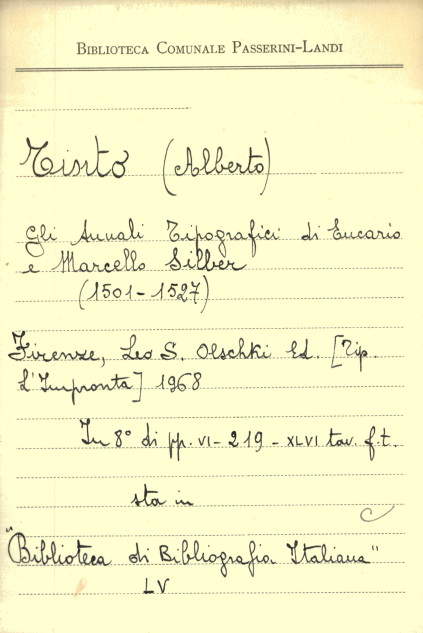 BIBLIOTECA COMUNALE PASSERINI-LANDI
Tinto (Alberto)
Gli Annali Tipografici di Eucario
e Marcello Silber
(1501-1527)
Firenze, Leo S. Olschki Ed. [Tip.
L'Impronta] 1968
In 8° di pp. VI-219-XLVI tav. f.t.
sta in
"Biblioteca di Bibliografia Italiana"
LV